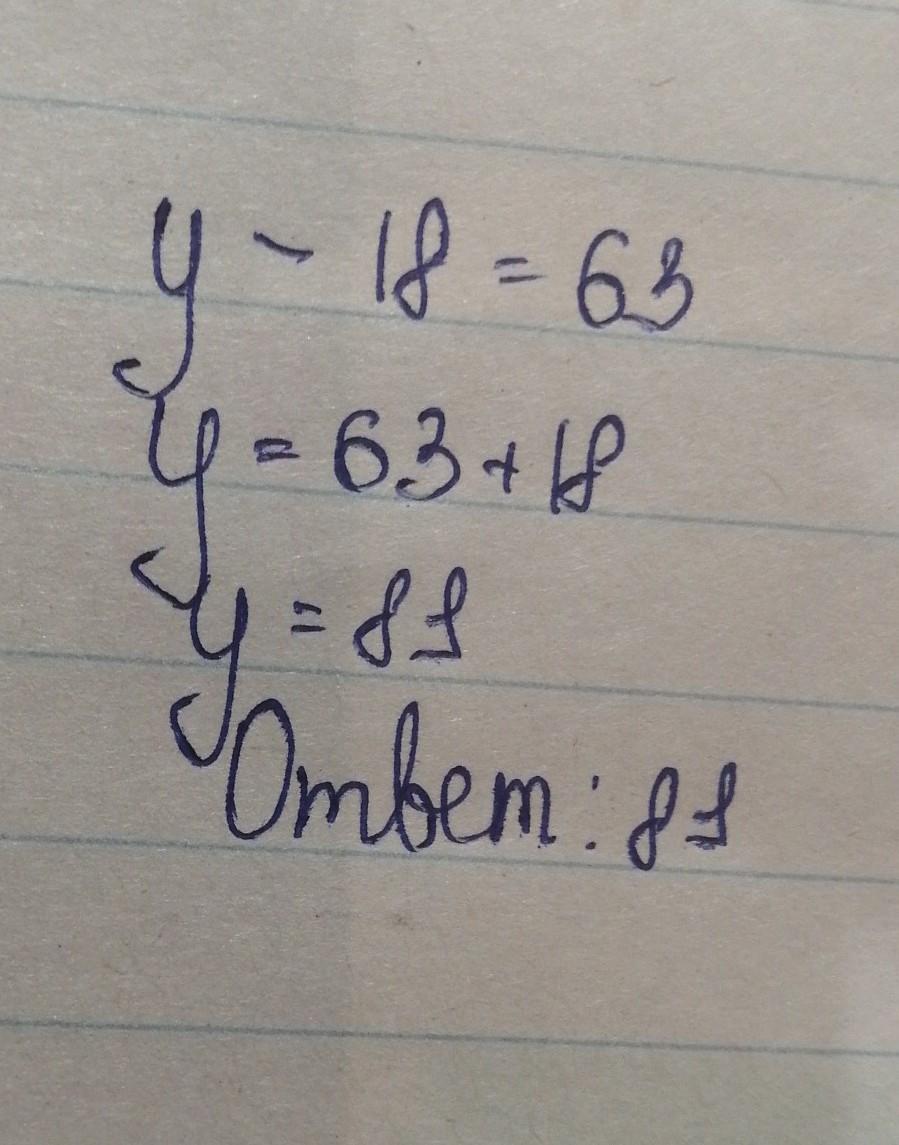 y - 18 = 63
y = 63 + 18
y = 81
Ответ: 81